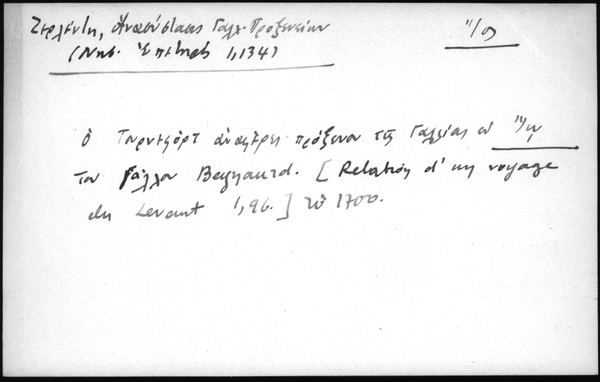 Ζερλέντη, Ἀνασύστασις Γαλλ. Προξενείων
Ἴος
(Νησ. Ἐπετηρὶς 1,134)
ὁ Τουρνεφόρτ ἀναφέρει πρόξενον τῆς Γαλλίας ἐν Ἴῳ
τον Γάλλον [Relation d'un voyage
du Levant 1,96.] τῷ 1700.